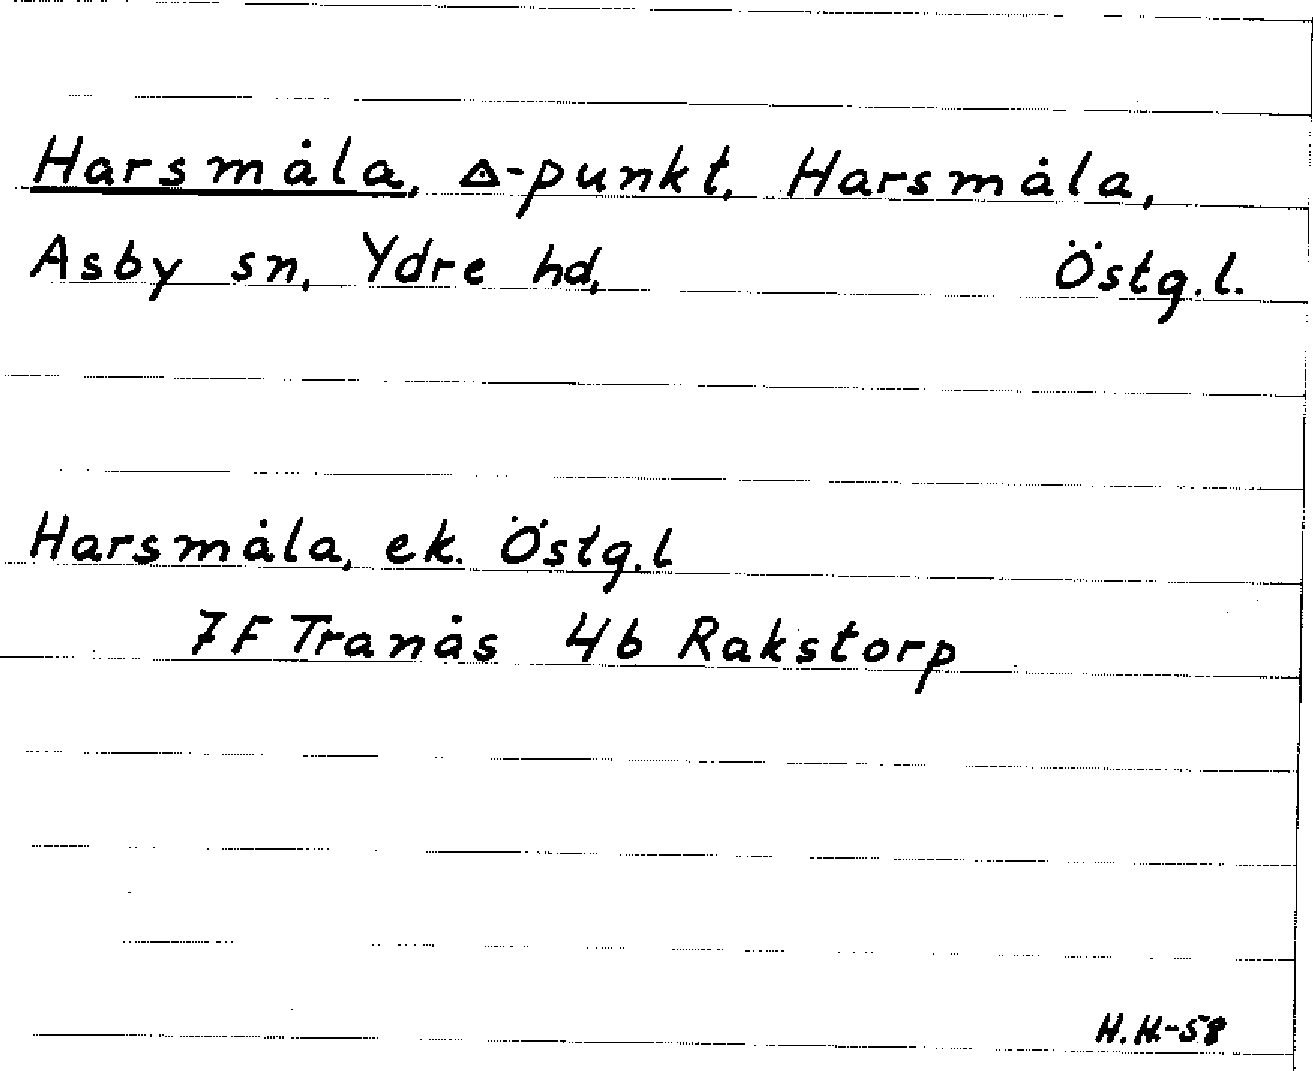 Harsmåla, △-punkt, Harsmåla,
Asby sn, Ydre hd, Östg.l.
Harsmåla, ek. Östg.l
7F Tranås 4b Rakstorp
H.H.-58